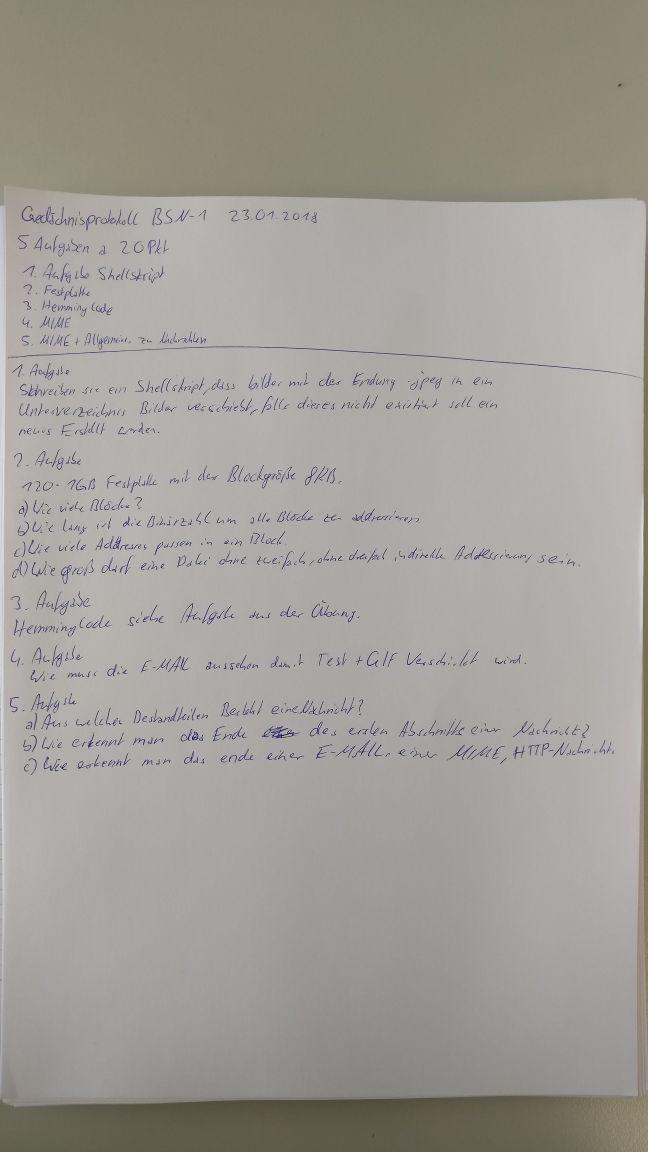 Gedächnisprotokoll BSN-1 23.01.2018
5 Aufgaben a 20Pkt
1. Aufgabe Shellskript
2. Festplatte
3. Hemming Code
4. MIME
5. MIME + Allgemeines zu Nachrichten
1. Aufgabe
Schreiben sie ein Shellskript, dass bilder mit der Endung .jpeg in ein
Unterverzeichnis Bilder verschiebt, falls dieses nicht existiert soll ein
neues Erstellt werden.
2. Aufgabe
120 · 1GB Festplatte mit der Blockgröße 8KB.
a) Wie viele Blöcke?
b) Wie lang ist die Binärzahl um alle Blöcke zu addressieren
c) Wie viele Addresses passen in ein Block.
d) Wie groß darf eine Datei ohne zweifach, ohne dreifach indirekte Addressierung sein.
3. Aufgabe
Hemming Code siehe Aufgabe aus der Übung.
4. Aufgabe
Wie muss die E-MAIL aussehen damit Text + Gif Verschickt wird.
5. Aufgabe
a) Aus welchen Bestandteilen Besteht eine Nachricht?
b) Wie erkennt man das Ende des ersten Abschnitts einer Nachricht?
c) Wie erkennt man das ende einer E-MAIL, einer MIME, HTTP-Nachricht.